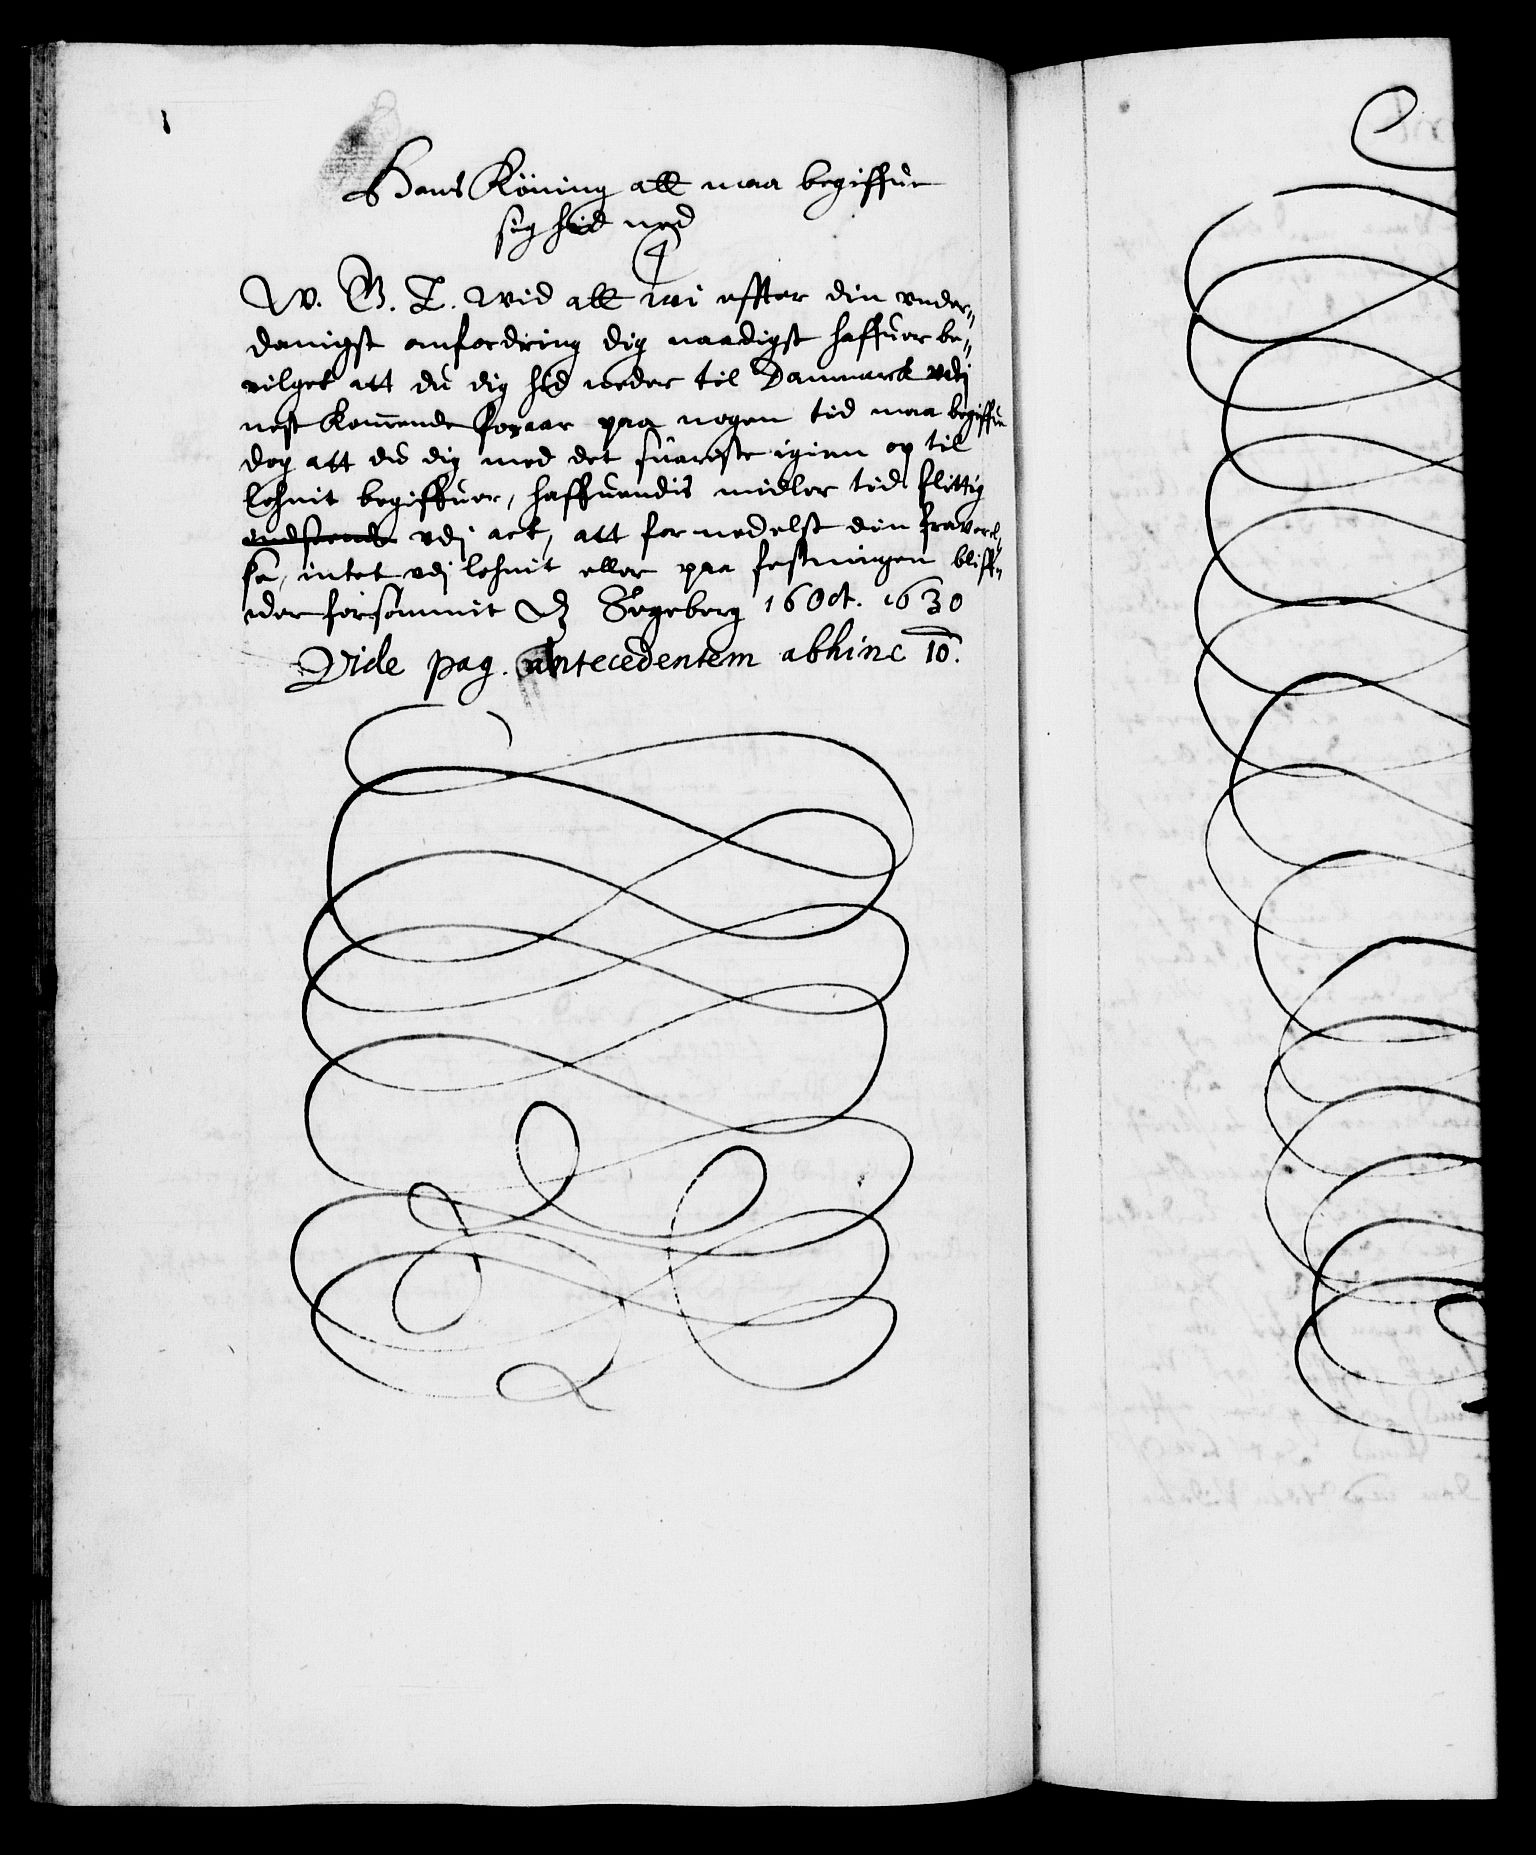 Hans Köning att maa begiffue
sig hid ned
W. G. T. Wid att wi effter din vnder„
danigst anfordring dig naadigst haffuer be„
vilget att du dig hid neder til Danmarck vdj
nest kom̄ende foraar paa nogen tid maa begiffue
dog att du dig med det snareste igien op til
lehnit begiffuer, haffuendis midler tid flittig
vdj act, att formedelst din fraverel„
se, intet vdj lehnit eller paa festningen bliff„
uer forsömmit Segeberg 16 Oct. 1630
Vide pag. antecedentem abhinc 10.